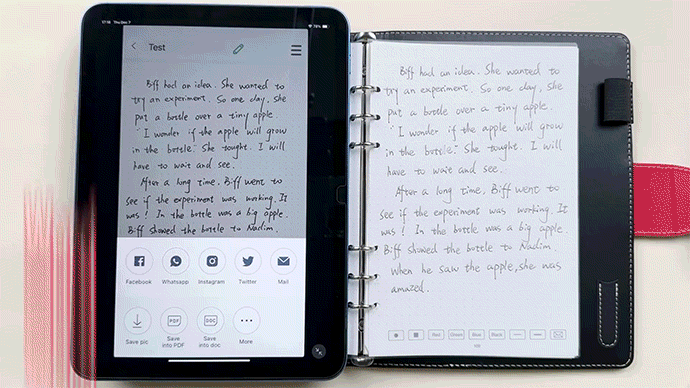 17:16 Thu Dec 7
76%
Test
Biff had an idea. She wanted to
try an experiment. So one day, she
put a bottle over a tiny apple.
"I wonder if the apple will grow
in the bottle." She tought. I will
have to wait and see.
After a long time, Biff went to
see if the experiment was working. It
was! In the bottle was a big apple.
Biff showed the bottle to Nadim.
Facebook Whatsapp Instagram Twitter Mail
Save pic Save into PDF Save into doc More
PDF DOC
Biff had an idea. She wanted to
try an experiment. So one day, she
put a bottle over a tiny apple.
"I wonder if the apple will grow
in the bottle." She tought. I will
have to wait and see.
After a long time, Biff went to
see if the experiment was working. It
was! In the bottle was a big apple.
Biff showed the bottle to Nadim.
When he saw the apple, she was
amazed.
Red Green Blue Black